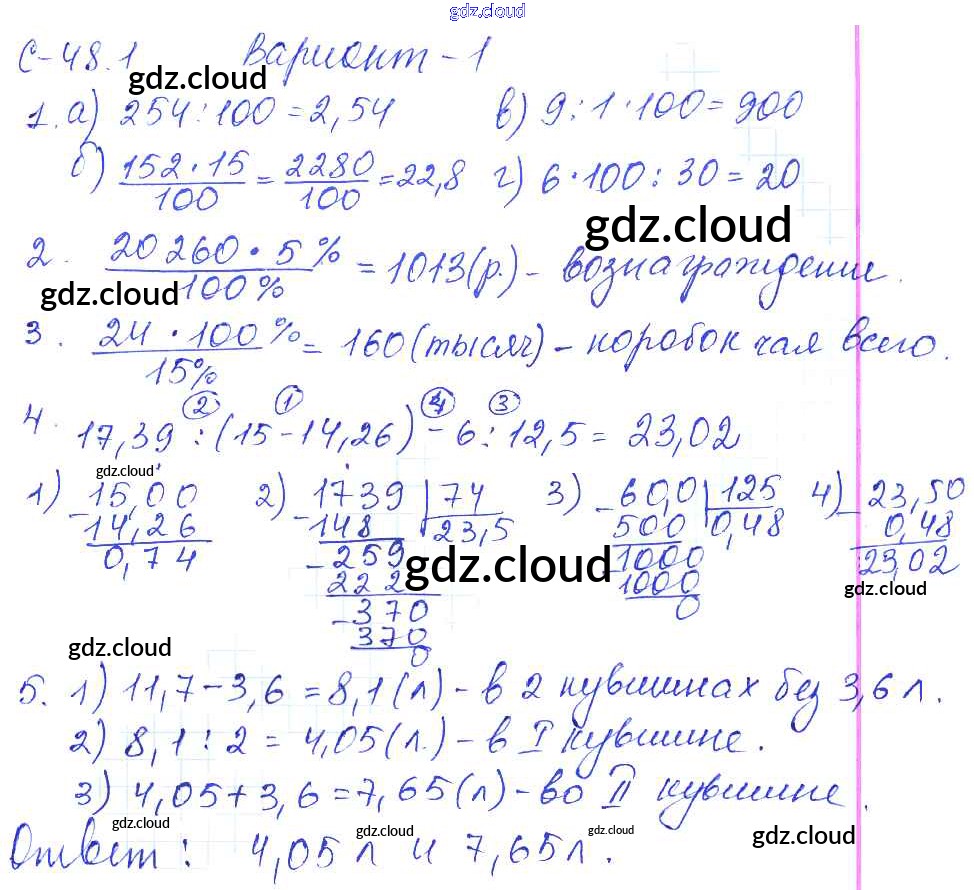 gdz.cloud
С-48.1 Вариант-1
gdz.cloud
1. а) 254:100=2,54 в) 9:1·100=900
б) 152·15/100 = 2280/100 = 22,8 г) 6·100:30=20
gdz.cloud
2. 20260·5%/100% = 1013(р.) - вознаграждение.
gdz.cloud
3. 24·100%/15% = 160(тысяч) - коробок чая всего.
② ① ④ ③
4. 17,39:(15-14,26)-6:12,5=23,02
gdz.cloud
1) 15,00 2) 1739 | 74 3) 60,0 | 125 4) 23,50
- 14,26 - 148 23,5 - 500 0,48 - 0,48
0,74 - 259 - 1000 23,02
222 1000
- 370 0
370
0
gdz.cloud
gdz.cloud
gdz.cloud
5. 1) 11,7-3,6=8,1(л) - в 2 кувшинах без 3,6 л.
2) 8,1:2=4,05(л.) - в I кувшине.
3) 4,05+3,6=7,65(л) - во II кувшине.
gdz.cloud gdz.cloud gdz.cloud gdz.cloud
Ответ: 4,05 л и 7,65 л.